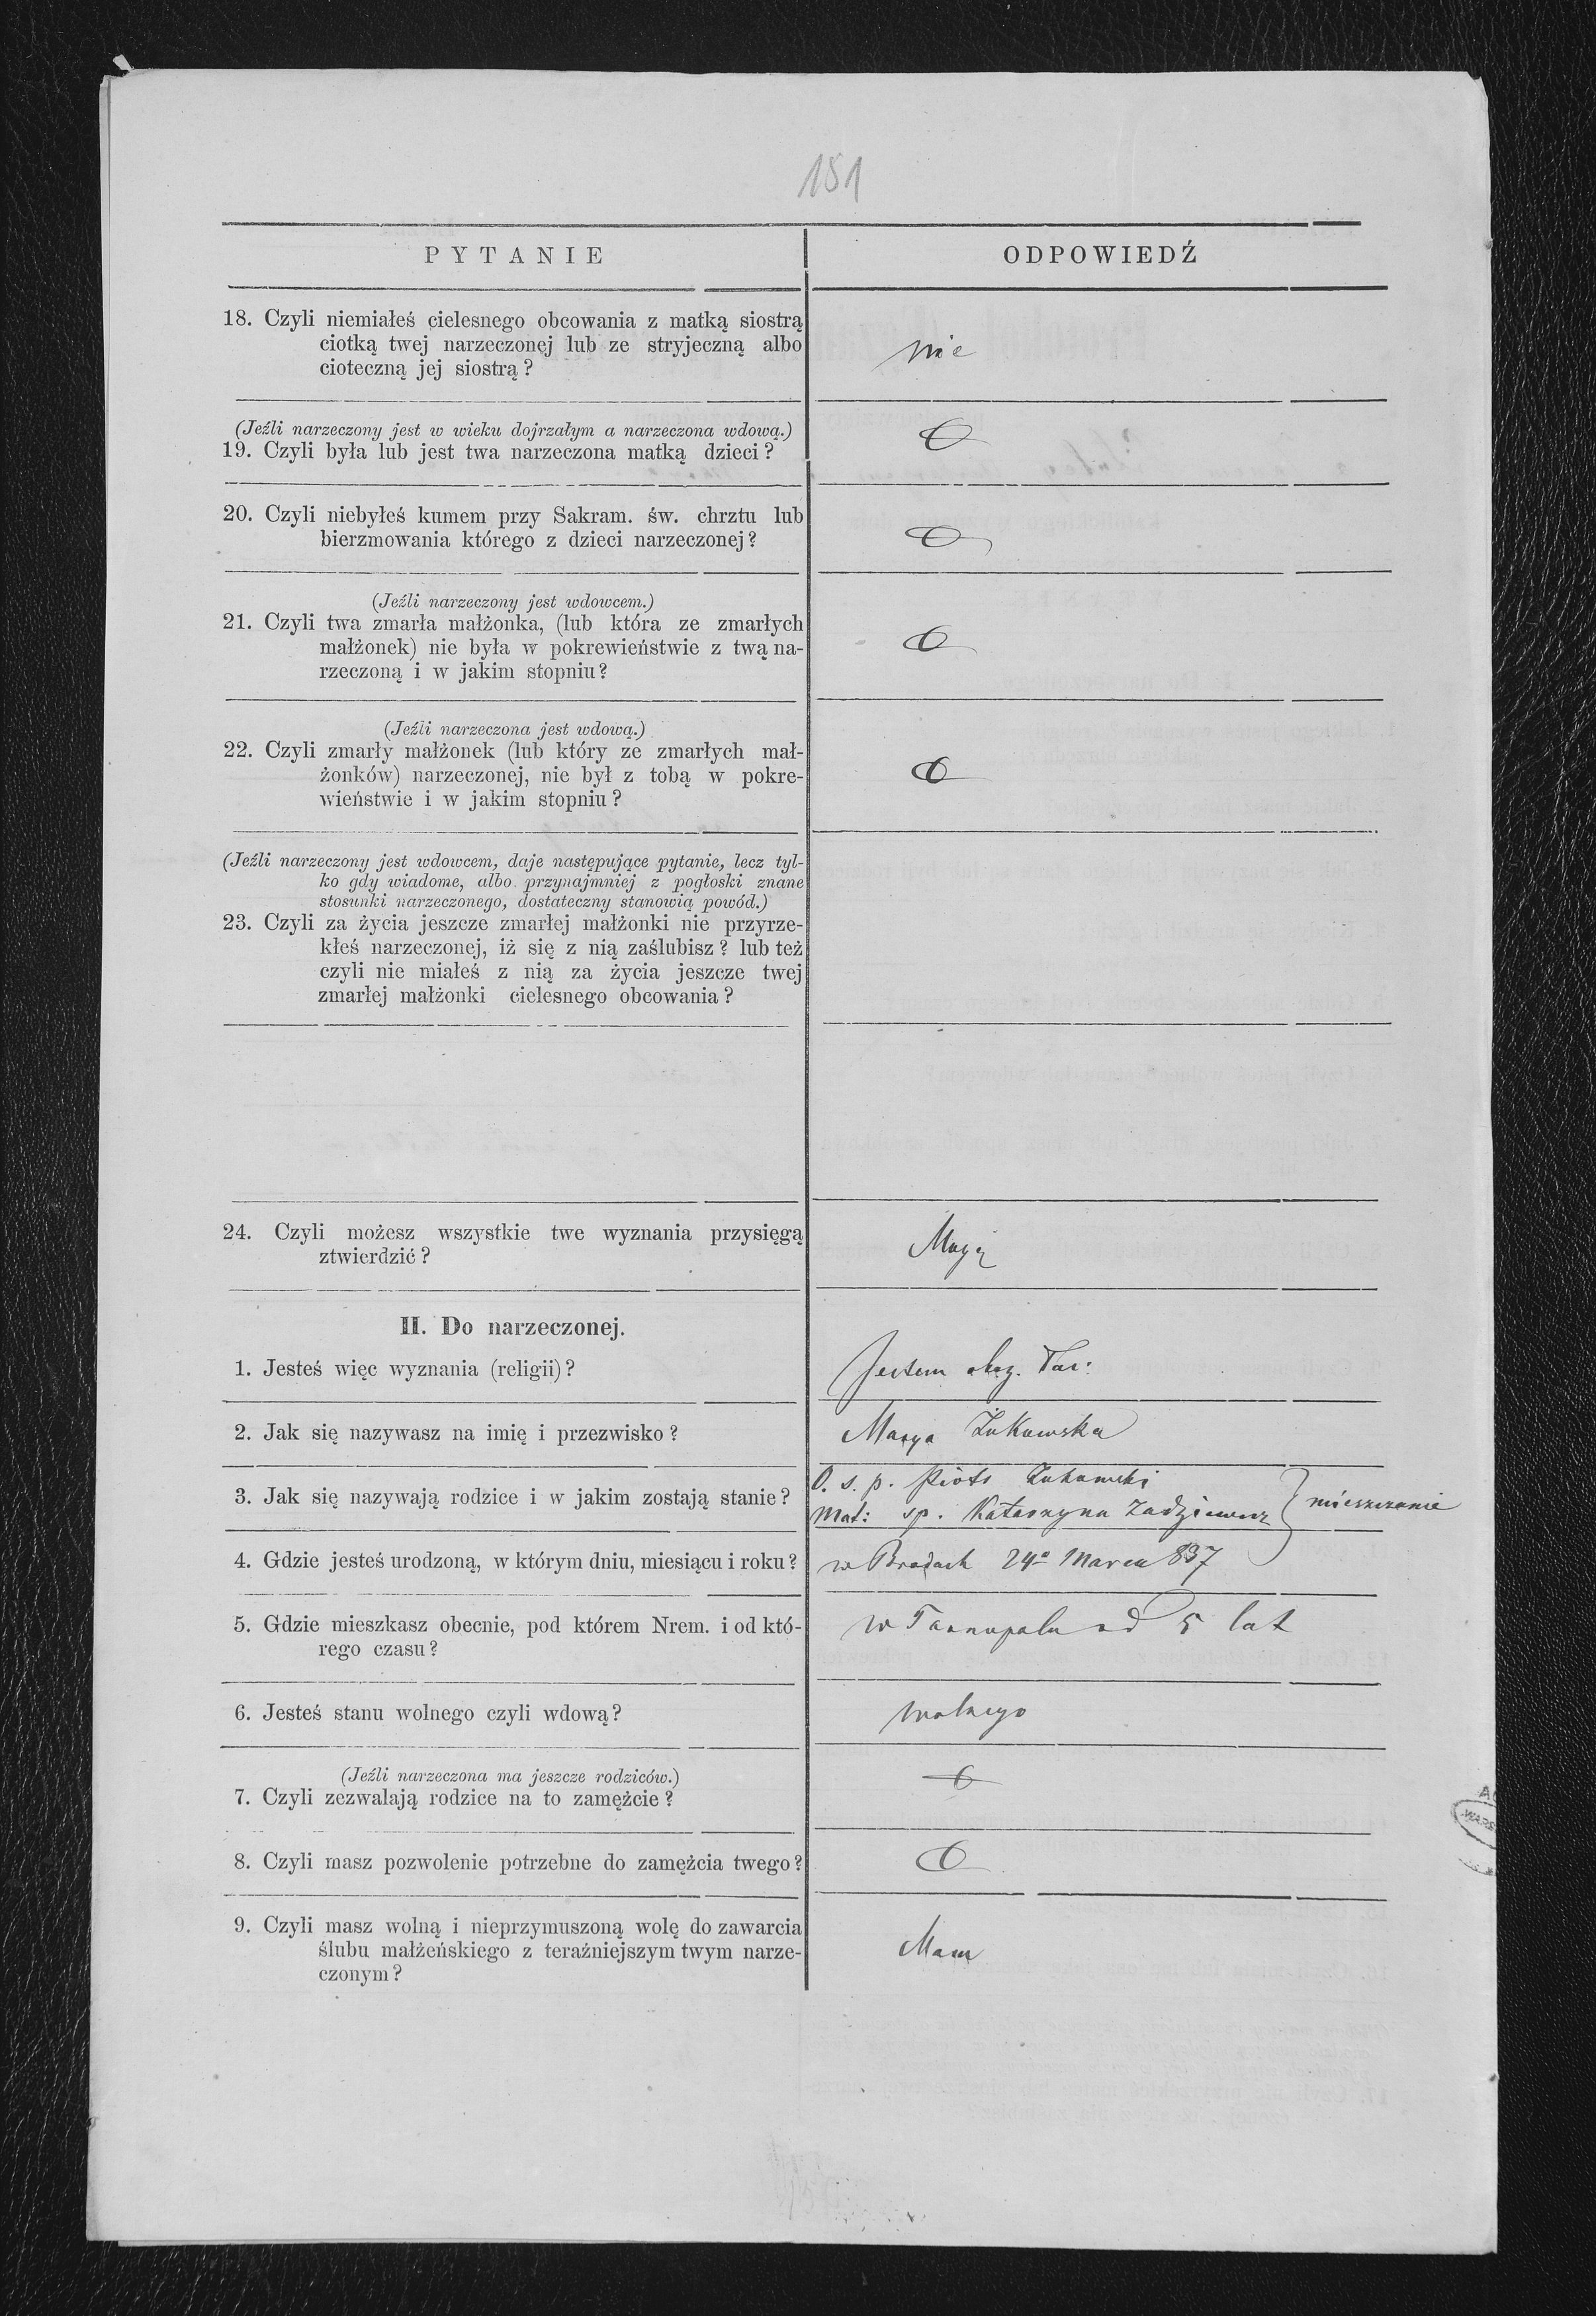 181
PYTANIE
ODPOWIEDŹ
18. Czyli niemiałeś cielesnego obcowania z matką siostrą
ciotką twej narzeczonej lub ze stryjeczną albo
cioteczną jej siostrą?
nie
(Jeźli narzeczony jest w wieku dojrzałym a narzeczona wdową.)
19. Czyli była lub jest twa narzeczona matką dzieci?
20. Czyli niebyłeś kumem przy Sakram. św. chrztu lub
bierzmowania którego z dzieci narzeczonej?
(Jeźli narzeczony jest wdowcem.)
21. Czyli twa zmarła małżonka, (lub która ze zmarłych
małżonek) nie była w pokrewieństwie z twą na-
rzeczoną i w jakim stopniu?
(Jeźli narzeczona jest wdową.)
22. Czyli zmarły małżonek (lub który ze zmarłych mał-
żonków) narzeczonej, nie był z tobą w pokre-
wieństwie i w jakim stopniu?
(Jeźli narzeczony jest wdowcem, daje następujące pytanie, lecz tyl-
ko gdy wiadome, albo przynajmniej z pogłoski znane
stosunki narzeczonego, dostateczny stanowią powód.)
23. Czyli za życia jeszcze zmarłej małżonki nie przyrze-
kłeś narzeczonej, iż się z nią zaślubisz? lub też
czyli nie miałeś z nią za życia jeszcze twej
zmarłej małżonki cielesnego obcowania?
24. Czyli możesz wszystkie twe wyznania przysięgą
ztwierdzić?
Mogę
II. Do narzeczonej.
1. Jesteś więc wyznania (religii)?
Jestem obrz. łac:
2. Jak się nazywasz na imię i przezwisko?
Marya Żukowska
3. Jak się nazywają rodzice i w jakim zostają stanie?
O. s. p. Piotr Żukowski
Mat: sp. Katarzyna Zadziewicz
mieszczanie
4. Gdzie jesteś urodzoną, w którym dniu, miesiącu i roku?
w Brodach 24o Marca 837
5. Gdzie mieszkasz obecnie, pod którem Nrem. i od któ-
rego czasu?
w Tarnopolu od 5 lat
6. Jesteś stanu wolnego czyli wdową?
wolnego
(Jeźli narzeczona ma jeszcze rodziców.)
7. Czyli zezwalają rodzice na to zamężcie?
8. Czyli masz pozwolenie potrzebne do zamężcia twego?
9. Czyli masz wolną i nieprzymuszoną wolę do zawarcia
ślubu małżeńskiego z teraźniejszym twym narze-
czonym?
Mam